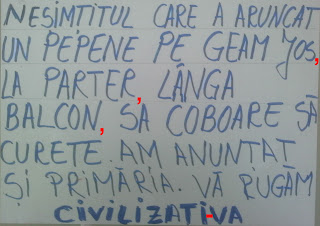 NESIMTITUL CARE A ARUNCAT
UN PEPENE PE GEAM JOS,
LA PARTER, LÂNGA
BALCON, SA COBOARE SĂ
CURETE. AM ANUNTAT
ȘI PRIMĂRIA. VĂ RUGĂM
CIVILIZATI-VA